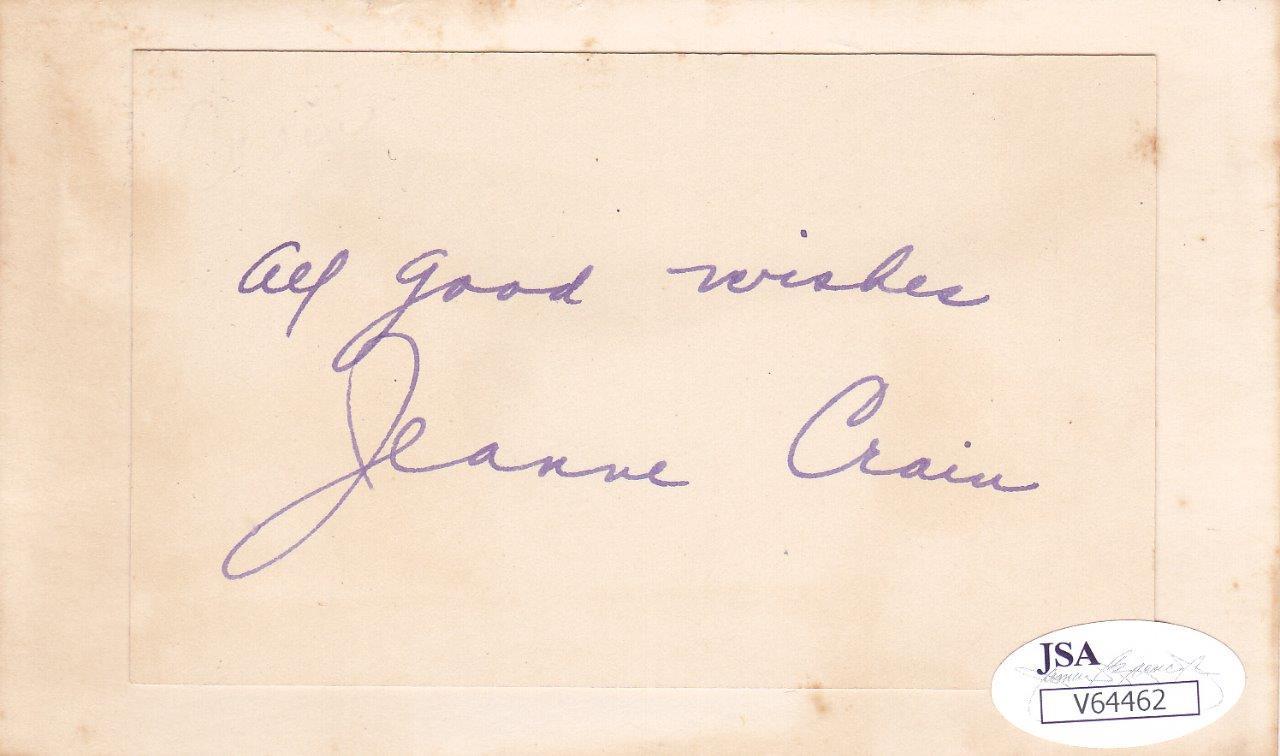 All good wishes
Jeanne Crain
JSA
V64462